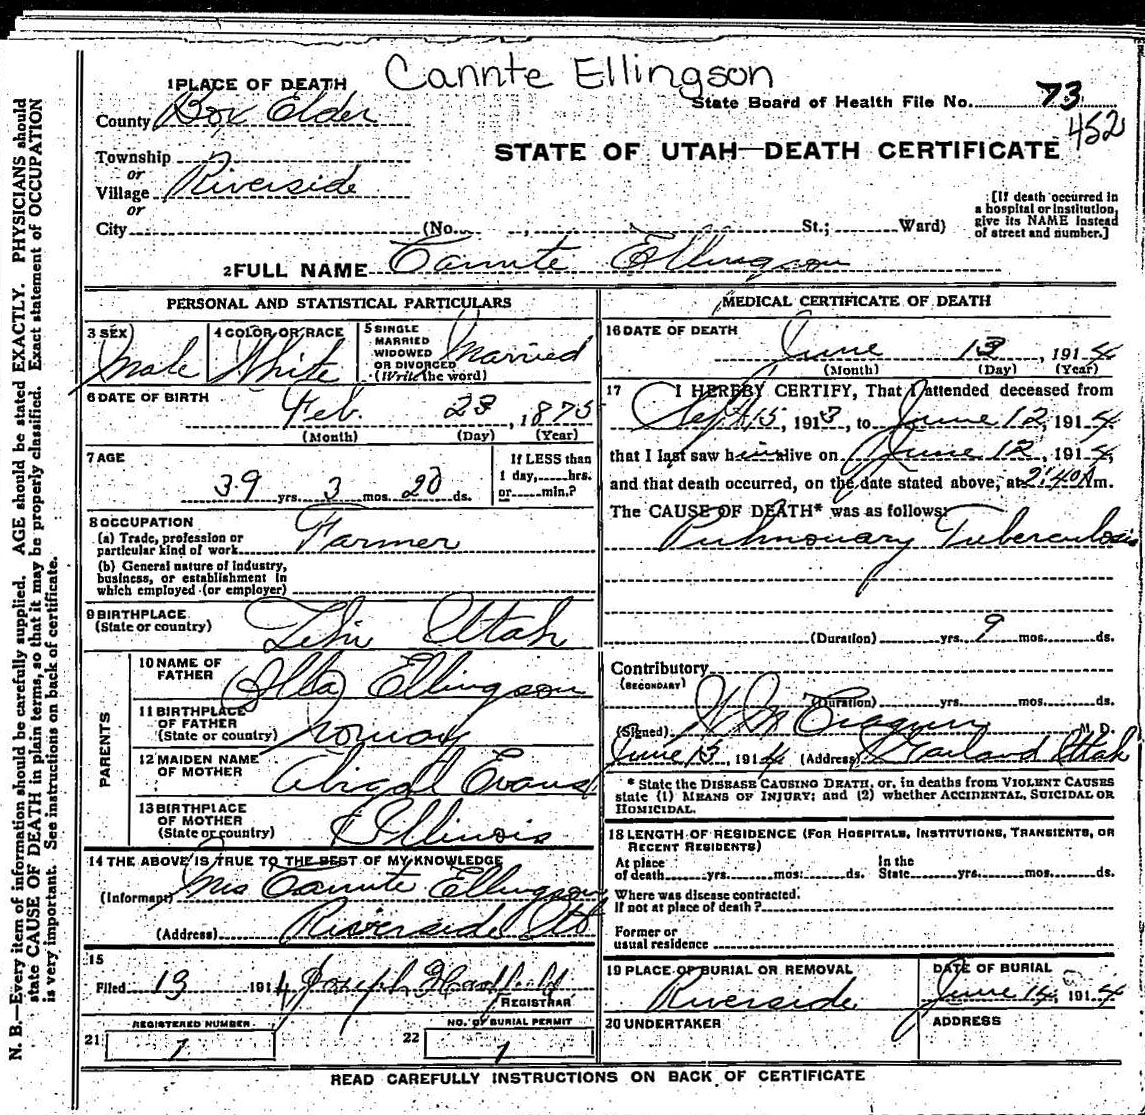 Cannte Ellingson
1 PLACE OF DEATH
State Board of Health File No. 73
452
County Box Elder
STATE OF UTAH—DEATH CERTIFICATE
Township
or
Village Riverside
or
City (No. , St.; Ward)
[If death occurred in
a hospital or institution,
give its NAME instead
of street and number.]
2 FULL NAME Cannte Ellingson
PERSONAL AND STATISTICAL PARTICULARS
3 SEX
Male
4 COLOR OR RACE
White
5 SINGLE
MARRIED
WIDOWED
OR DIVORCED
(Write the word)
Married
6 DATE OF BIRTH
Feb. 23, 1875
(Month) (Day) (Year)
7 AGE
39 yrs. 3 mos. 20 ds.
If LESS than
1 day, hrs.
or min.?
8 OCCUPATION
(a) Trade, profession or
particular kind of work Farmer
(b) General nature of industry,
business, or establishment in
which employed (or employer)
9 BIRTHPLACE
(State or country) Lehi Utah
PARENTS
10 NAME OF
FATHER Ellingson
11 BIRTHPLACE
OF FATHER
(State or country) Norway
12 MAIDEN NAME
OF MOTHER Abigall Evans
13 BIRTHPLACE
OF MOTHER
(State or country) Illinois
14 THE ABOVE IS TRUE TO THE BEST OF MY KNOWLEDGE
(Informant) Mrs Cannte Ellingson
(Address) Riverside
15
Filed 13 1914 Joseph
REGISTRAR
21 REGISTERED NUMBER
1
22 NO. OF BURIAL PERMIT
1
MEDICAL CERTIFICATE OF DEATH
16 DATE OF DEATH
June 13, 1914
(Month) (Day) (Year)
17 I HEREBY CERTIFY, That I attended deceased from
Sept 15, 1913, to June 12, 1914
that I last saw him alive on June 12, 1914,
and that death occurred, on the date stated above, at 2:40 A m.
The CAUSE OF DEATH* was as follows:
Pulmonary Tuberculosis
(Duration) yrs. 9 mos. ds.
Contributory
(SECONDARY)
(Duration) yrs. mos. ds.
(Signed) M. D.
June 13, 1914 (Address) Garland Utah
* State the DISEASE CAUSING DEATH, or, in deaths from VIOLENT CAUSES
state (1) MEANS OF INJURY; and (2) whether ACCIDENTAL, SUICIDAL OR
HOMICIDAL.
18 LENGTH OF RESIDENCE (FOR HOSPITALS, INSTITUTIONS, TRANSIENTS, OR
RECENT RESIDENTS)
At place
of death yrs. mos. ds.
In the
State yrs. mos. ds.
Where was disease contracted.
If not at place of death?
Former or
usual residence
19 PLACE OF BURIAL OR REMOVAL
Riverside
DATE OF BURIAL
June 14 1914
20 UNDERTAKER
ADDRESS
READ CAREFULLY INSTRUCTIONS ON BACK OF CERTIFICATE
N. B.—Every item of information should be carefully supplied. AGE should be stated EXACTLY. PHYSICIANS should
state CAUSE OF DEATH in plain terms, so that it may be properly classified. Exact statement of OCCUPATION
is very important. See instructions on back of certificate.